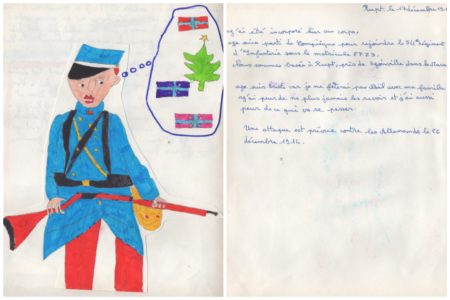 Rupt, le 17 décembre 191
J'ai été incorporé hier au corps.
Je suis parti de Compiègne pour rejoindre le 54e Régiment
d'Infanterie sous le matricule 5723.
Nous sommes basés à Rupt, près de
Je suis triste car je ne fêterai pas Noël avec ma famille
J'ai peur de ne plus jamais les revoir et j'ai aussi
peur de ce qui va se passer.
Une attaque est prévue contre les Allemands le 26
décembre 1914.